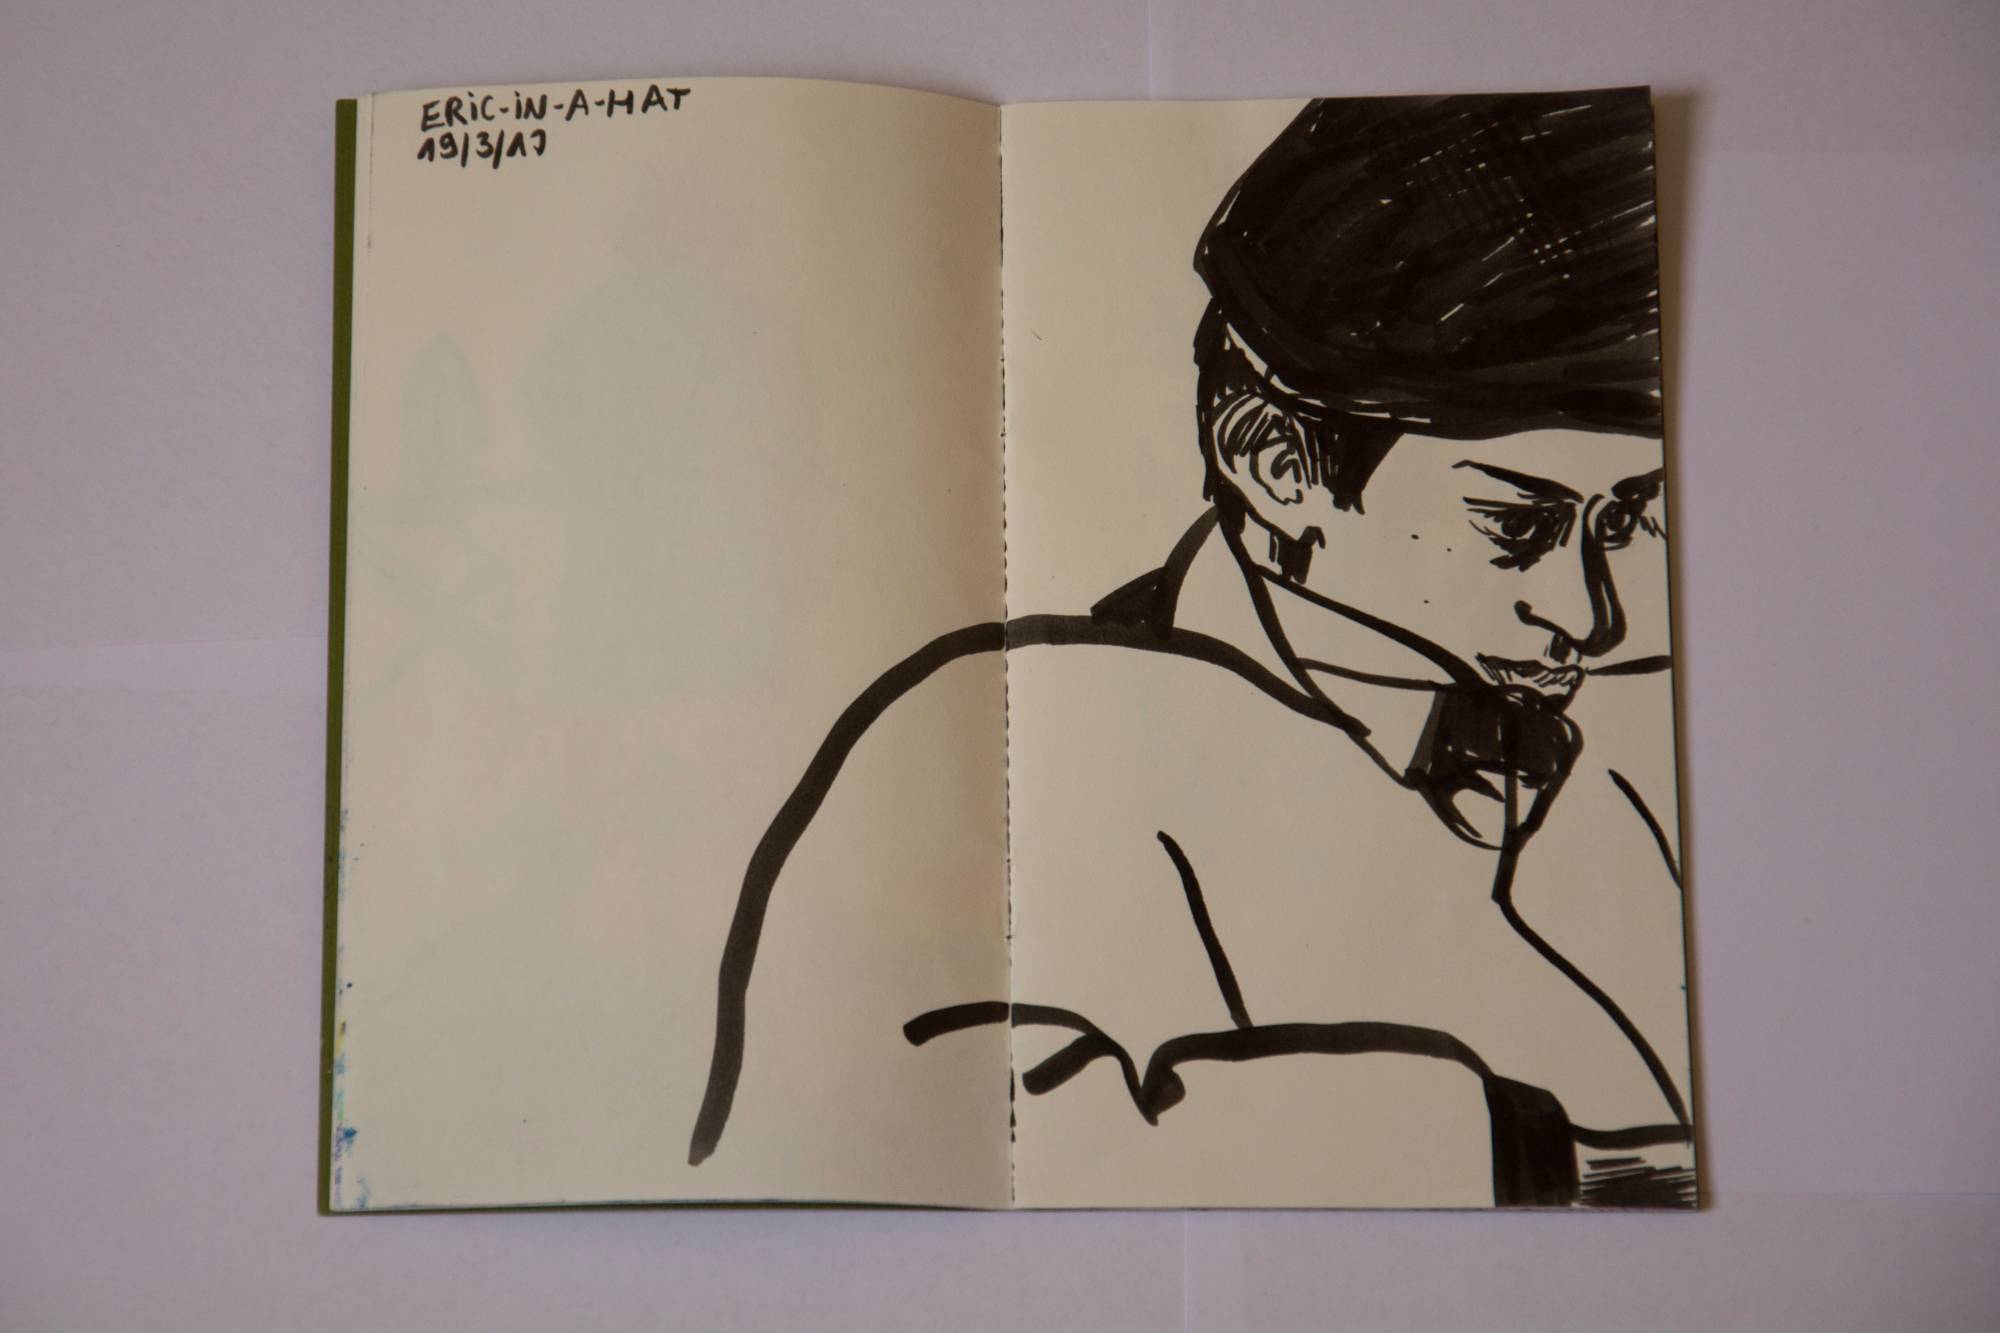 ERiC-iN-A-HAT
19/3/17